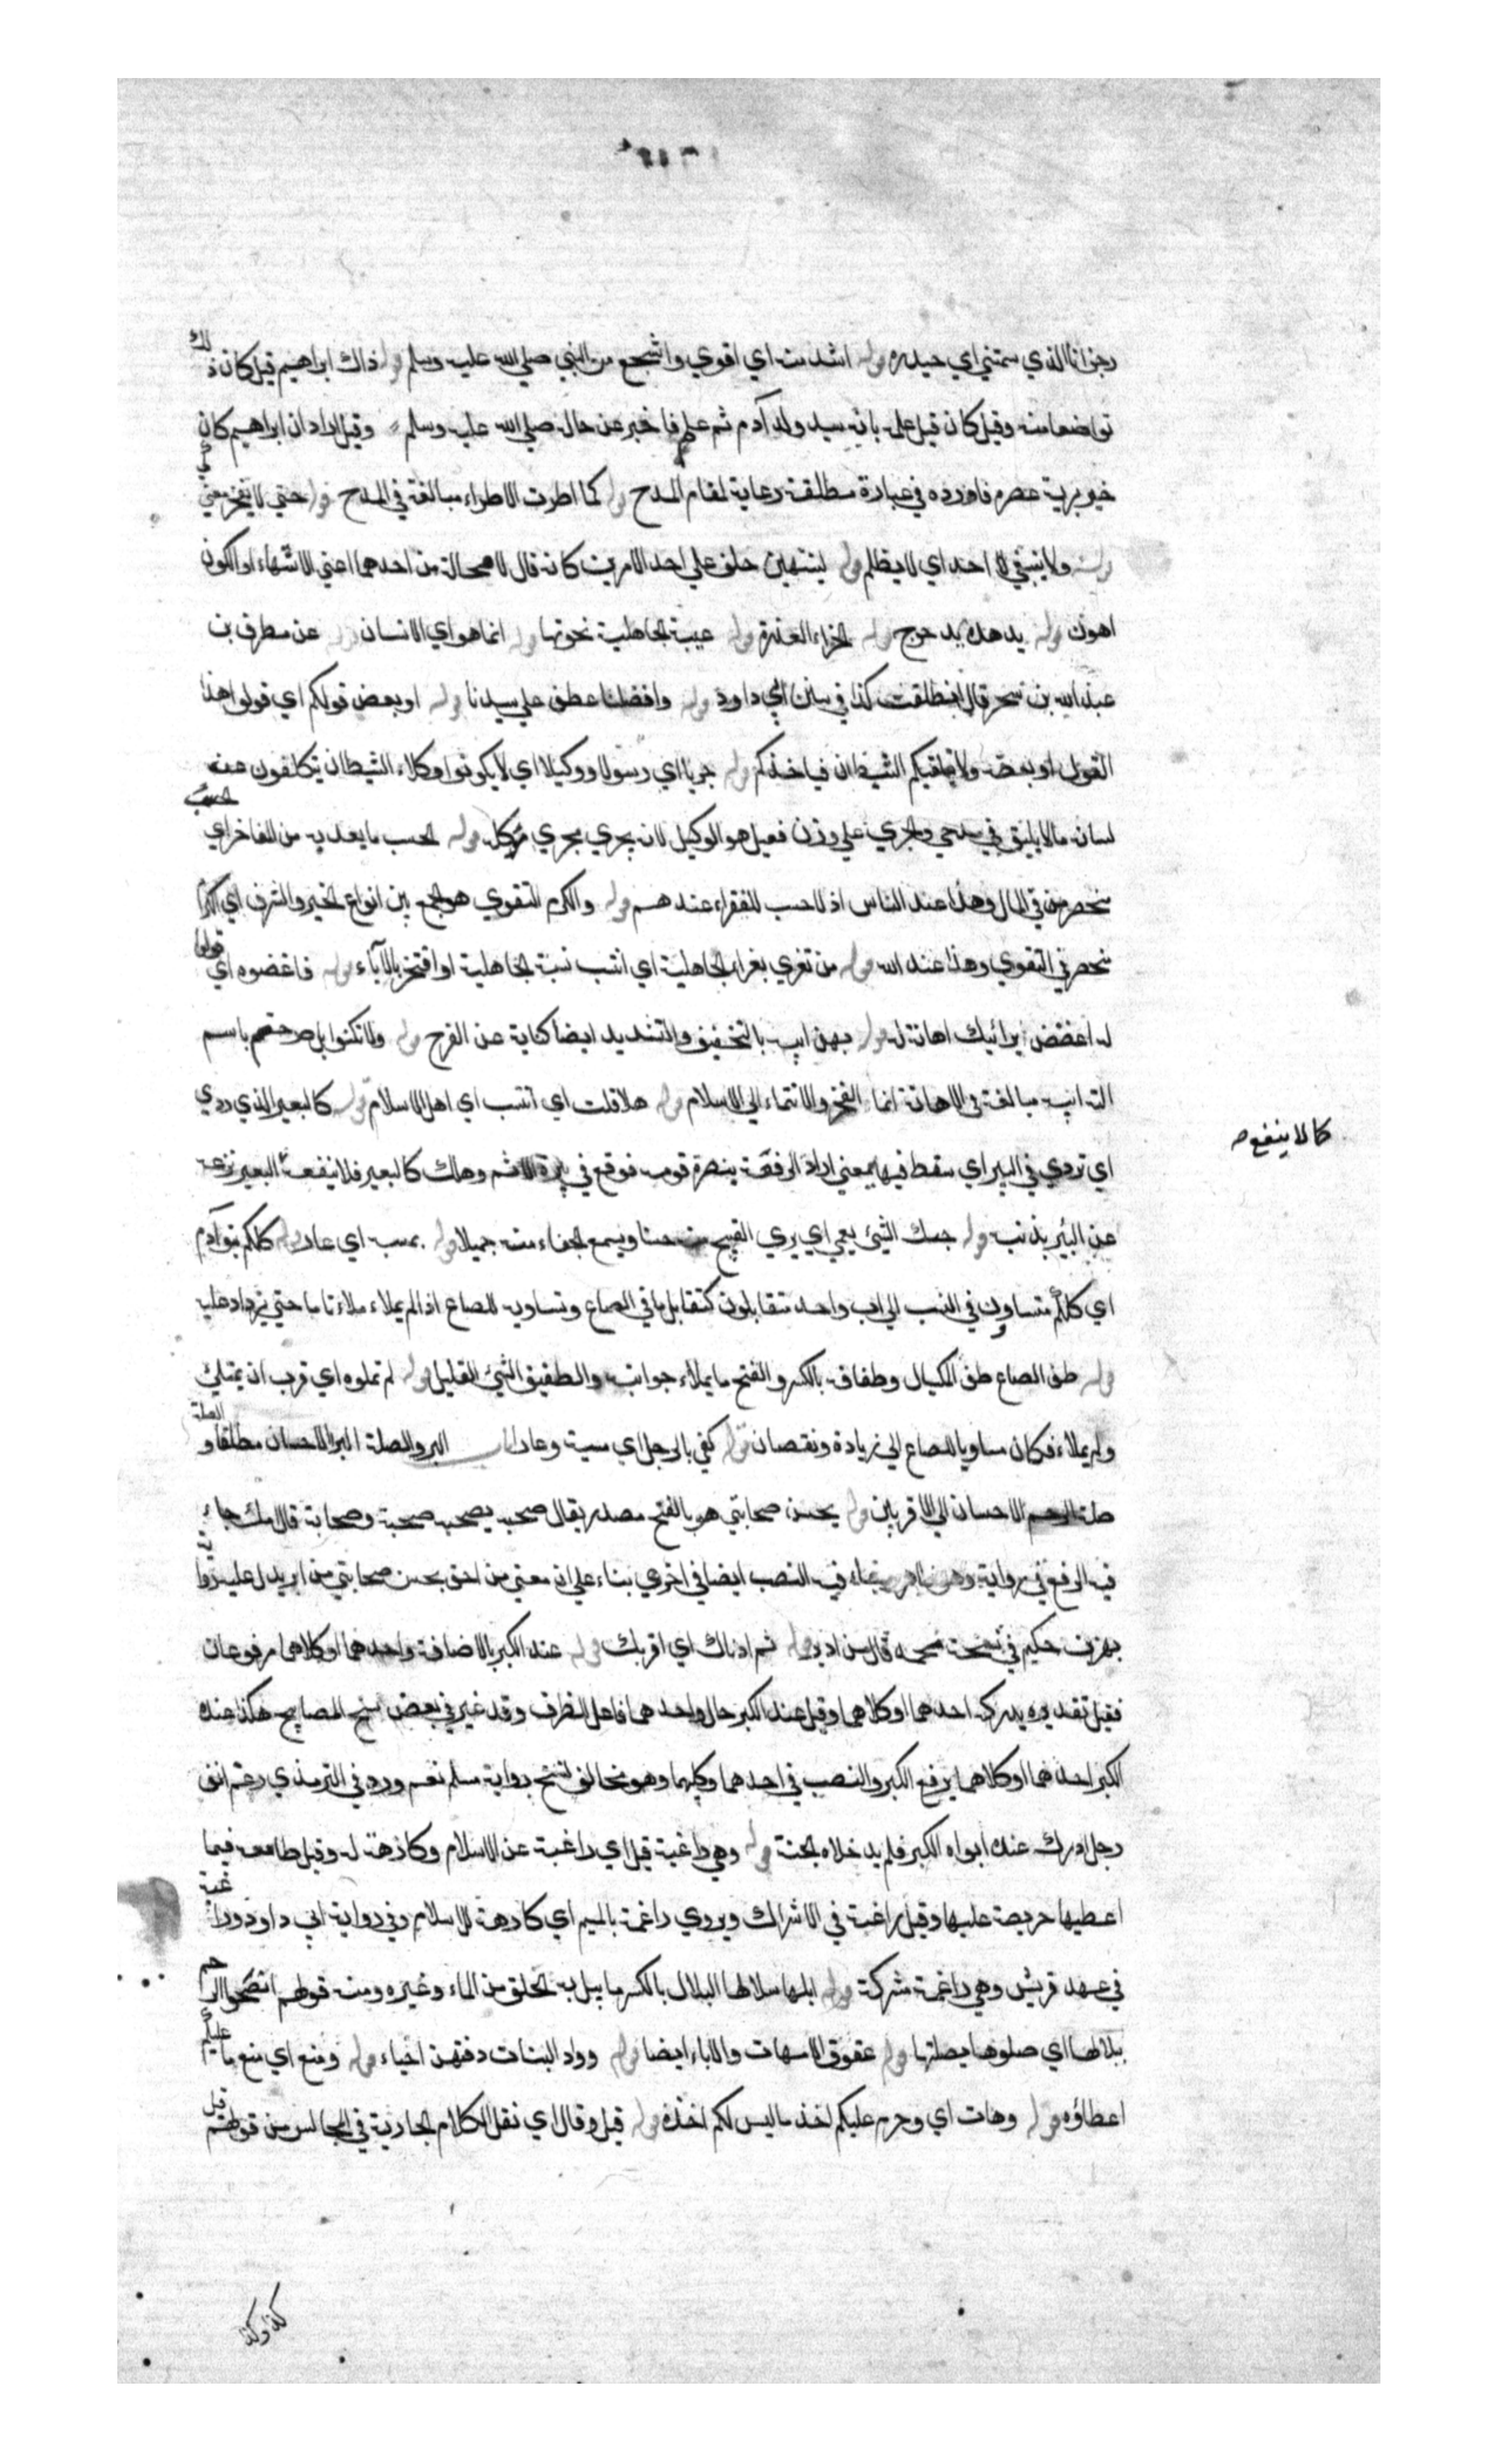 رجزا انا الذي سمتني امي حيدره قوله اشد منه اي اقوي واشجع من النبي صلي الله عليه وسلم قوله ذاك ابراهيم قيل كان ذلك
تواضعا منه وقيل كان قبل علمه بانه سيد ولد آدم ثم علم فاخبر عن حاله صلي الله عليه وسلم وقيل اراد ان ابراهيم كان
خير برية عصره فاورده في عبارة مطلقة رعاية لمقام المدح قوله كما اطرت الاطراء مبالغة في المدح قوله حتي لا يفخر معني
قوله ولا ينبغي لا احد اي لا يظلم قوله لينتهين حلف علي احد الامرين كانه قال لا محالة من احدهما اعني الانتهاء او الكون
اهون قوله يدهده يدحرج قوله الخراء العذرة قوله عبية الجاهلية نخوتها قوله انما هو اي الانسان قوله عن مطرف بن
عبد الله بن شخير قال انطلقت كذا في سنن ابي داود قوله وافضلنا عطف علي سيدنا قوله او بعض قولكم اي قولوا هذا
القول او بعضه ولا الشيطان فياخذكم قوله جريا اي رسولا ووكيلا اي لا يكونوا وكلاء الشيطان يتكلفون عنه
لسانه مالا يليق في مدحي والجري علي وزن فعيل هو الوكيل لانه يجري مجري موكله قوله الحسب ما يعد به من المفاخر اي الحسب
منحصر في المال وهذا عند الناس اذ لا حسب للفقراء عندهم قوله والكرم التقوي هو الجمع بين انواع الخير والشرف اي
منحصر في التقوي وهذا عند الله قوله من تعزي بعزاء الجاهلية اي انتسب نسبة الجاهلية او افتخر بالآباء قوله فاعضوه اي قولوا
له اعضض اهانة له قوله بهن ابيه بالتخفيف والتشديد ايضا كناية عن الفرج قوله ولا تكنوا بل صرحتم باسم
التـ ابيه مبالغة في الاهانة انما الفخر والانتماء الي الاسلام قوله هلا قلت اي انتسب اي اهل الاسلام قوله كالبعير الذي ردي
اي تردي في البير اي سقط فيها بمعني اراد الرفعة بنصرة قومه فوقع في بيرة الاثم وهلك كالبعير فلا ينفعه البعير نزعه
كما لا ينفع ص
عن البئر بذنبه قوله حبك الشئ يعمي اي يري القبيح منه حسنا ويسمع الجفاء منه جميلا قوله بمسبه اي عار قوله كلكم بنو آدم
اي كلكم متساوون في النسب الي اب واحد متقابلون كتقابل ما في الصاع وتساويه للصاع اذا لم يملاء ملاء تاما حتي يزداد عليه
قوله طف الصاع طف المكيال وطفافه بالكسر والفتح ما يملاء جوانبه والطفيف الشئ القليل قوله لم تملوه اي قرب ان يمتلئ
ولم يملاء فكان مساويا للصاع الي زيادة ونقصان قوله كفي بالرجل اي مسبة وعارا باب البر والصلة البر الاحسان مطلقا و الصلة
صلة الرحم الاحسان الي الاقربين قوله بحسن صحابتي هو بالفتح مصدر يقال صحبه يصحبه صحبة وصحابة قال امك جاء
فيه الرفع في رواية وهو ظاهر وجاء فيه النصب ايضا في اخري بناء علي ان معني من احق بحسن صحابتي من ابر يدل عليه رواية
بهز بن حكيم في نسخة صحيحه قال من ابر قوله ثم ادناك اي اقربك قوله عند الكبر بالاضافة واحدهما او كلاهما مرفوعان
فقيل تقديره يدركه احدهما او كلاهما وقيل عند الكبر حال واحدهما فاعل الظرف وقد غير في بعض نسخ المصابيح هكذا عنده
الكبر احدهما او كلاهما برفع الكبر والنصب في احدهما وكليهما وهو مخالف لنسخ رواية مسلم نعم ورد في الترمذي رغم انف
رجل ادرك عنده ابواه الكبر فلم يدخلاه الجنة قوله وهي راغبة قيل اي راغبة عن الاسلام وكارهة له وقيل طامعه فيما
اعطيها حريصة عليها وقيل راغبة في الاشراك ويروي راغمة بالميم اي كارهة للاسلام وفي رواية ابي داود وراغبة
في عهد قريش وهي راغمة مشركة قوله ابلها ببلالها البلال بالكسر ما يبل به الحلق من الماء وغيره ومنه قولهم انضحوا الرحم
ببلالها اي صلوها بصلتها قوله عقوق الامهات والاباء ايضا قوله وواد البنات دفنهن احياء قوله ومنع اي منع ما عليكم
اعطاؤه قوله وهات اي وحرم عليكم اخذ ما ليس لكم اخذه قوله قيل وقال اي نقل الكلام الجارية في المجالس من قولهم قيل
كذا وكذا